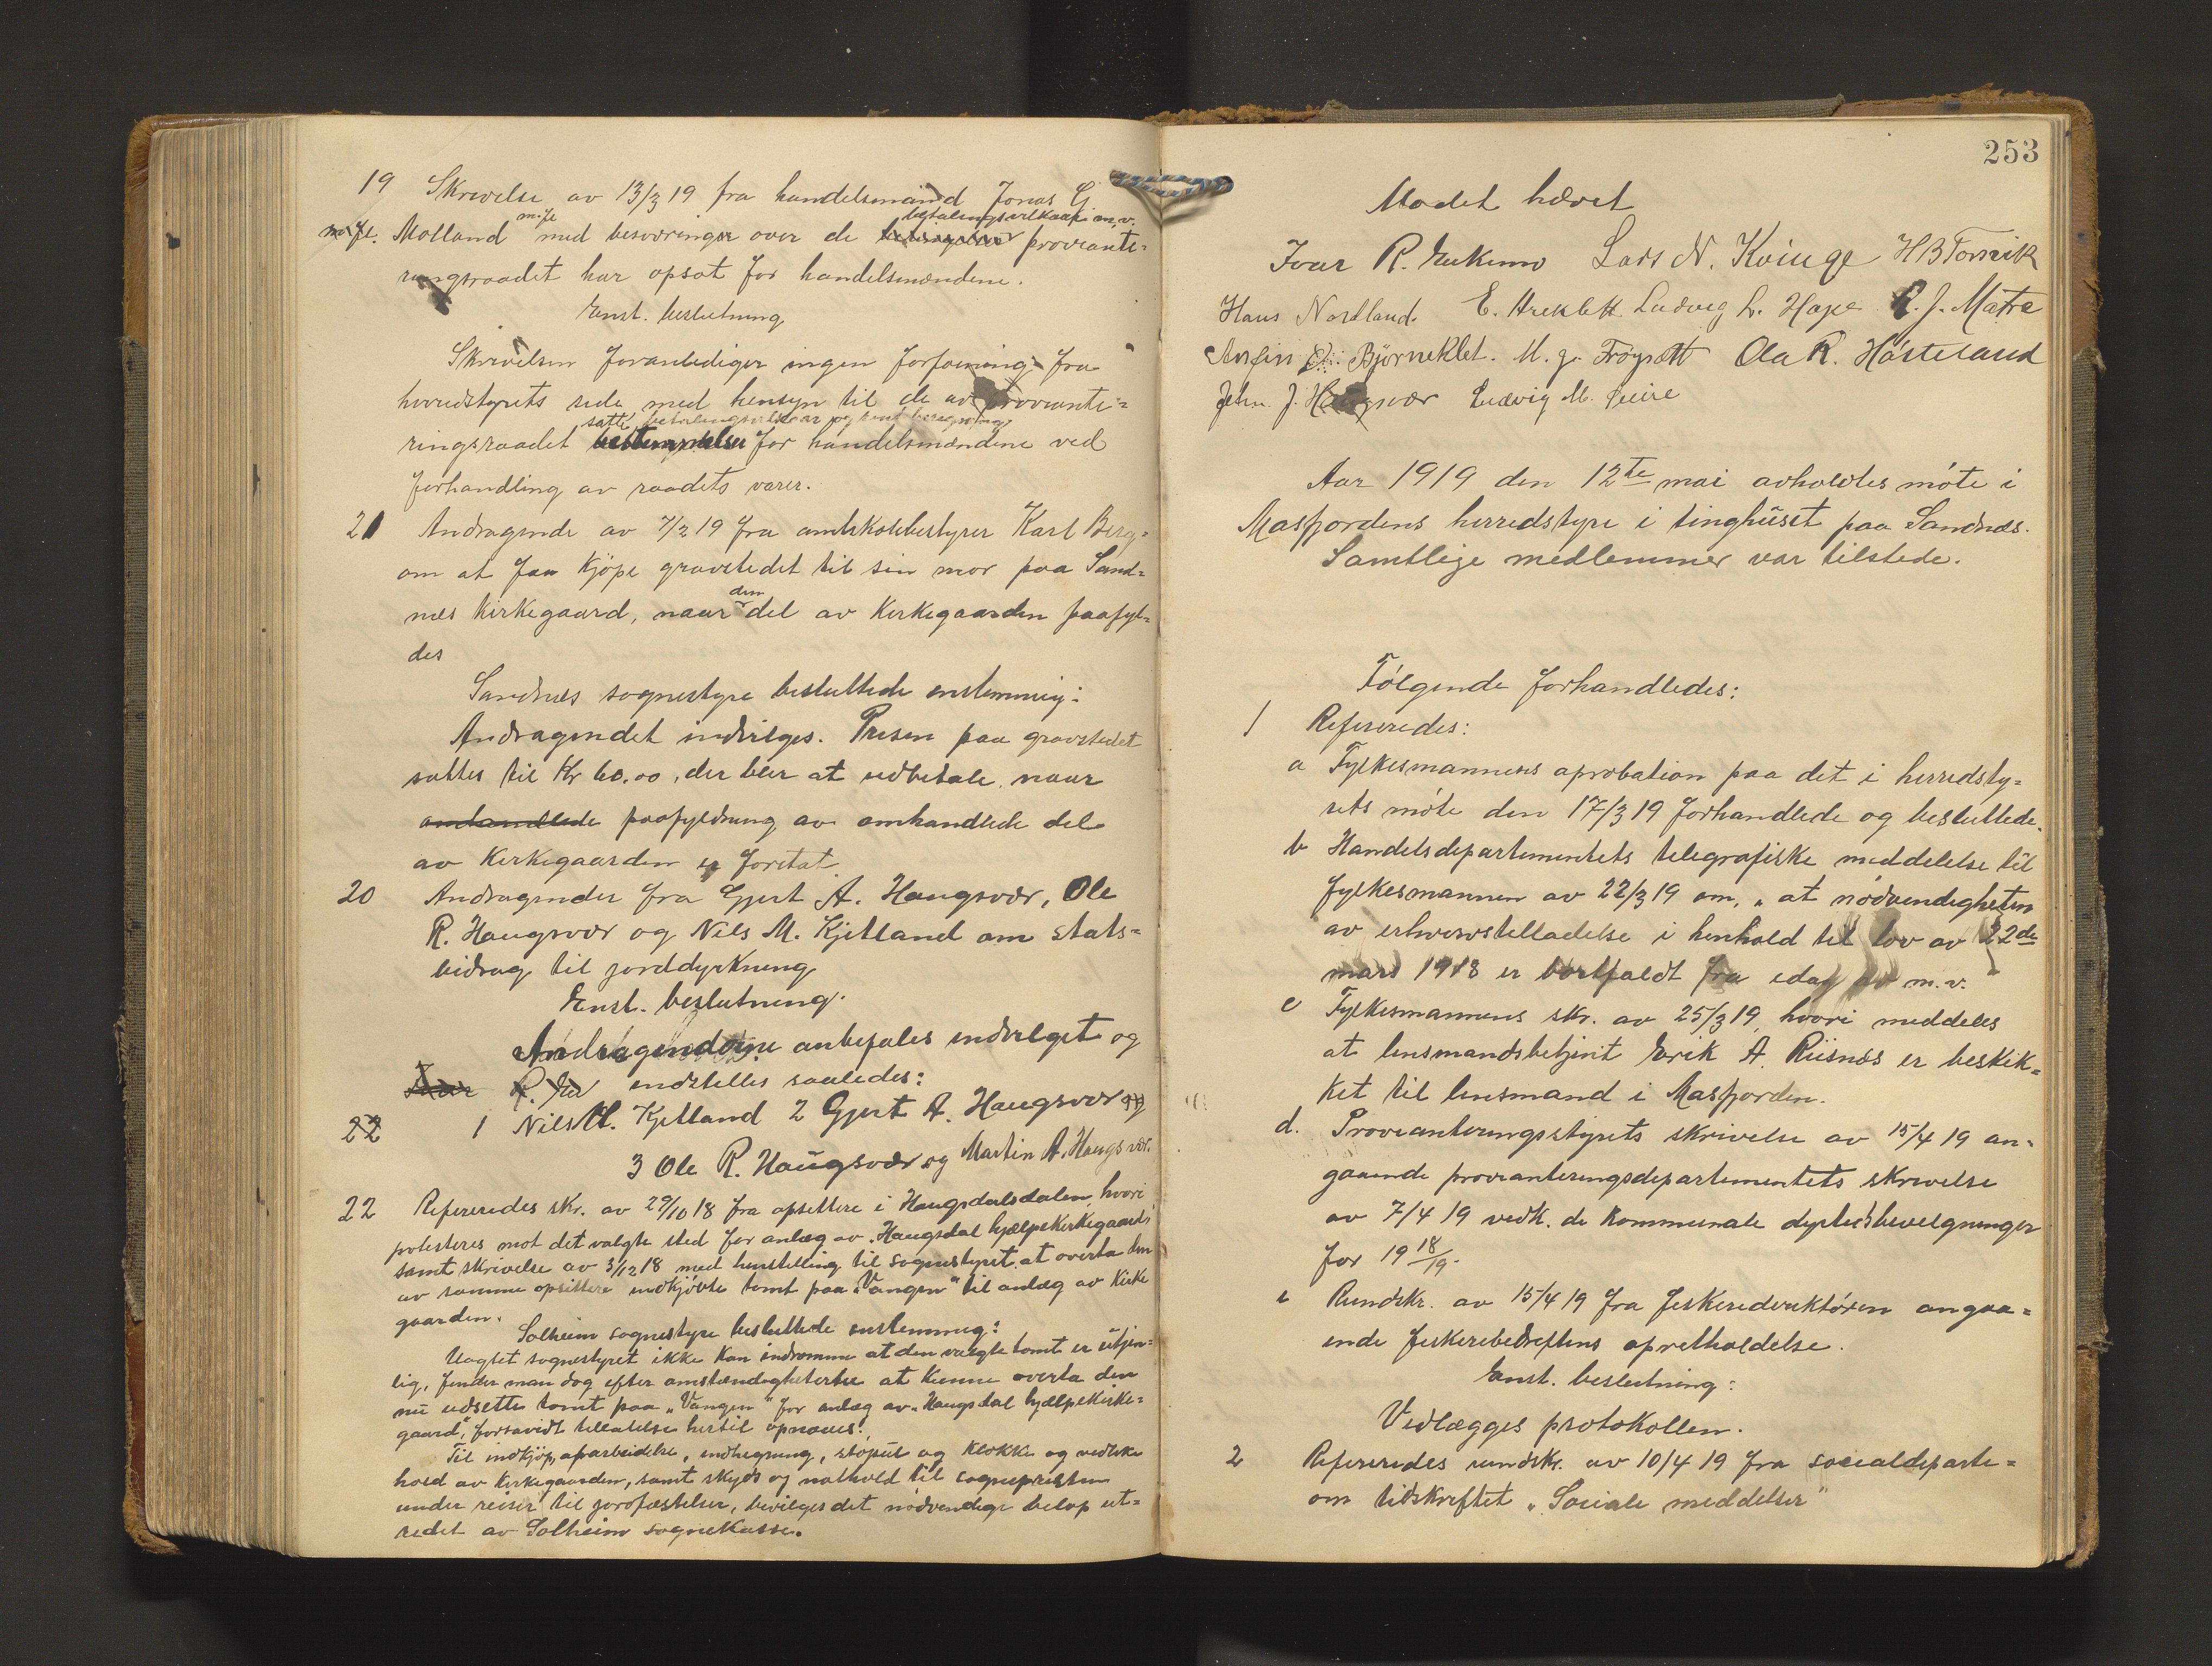 19 Skrivelse av 13/3 19 fra handelsmand Jonas G.
m. fl. Molland m. fl. med besværinger over de betalingsvilkaar m.v. proviante-
ringsraadet har opsat for handelsmændene.
Enst. beslutning
Skrivelsen foranlediger ingen forføining fra
herredstyrets side med hensyn til de av proviante-
ringsraadet satte betalingsvilkaar og bestemmelser for handelsmændene ved
forhandling av raadets varer.
21 Andragende av 7/2 19 fra amtskolebestyrer Karl Berg-
om at faa kjöpe gravstedet til sin mor paa Sand-
nes kirkegaard, naar den del av kirkegaarden paafyl-
des
Sandnæs sognestyre besluttede enstemmig:
Andragendet indvilges. Prisen paa gravstedet
sættes til Kr 60.00, der blir at udbetale naar
omhandlede paafyldning av omhandlede del
av kirkegaarden er foretat.
20 Andragender fra Gjert A. Haugsvær, Ole
R. Haugsvær og Nils M. Kjetland om stats-
bidrag til jorddyrkning
Enst. beslutning.
Andragenderne anbefales indvilget og
Ivar R. indstilles saaledes:
22 1 Nils M. Kjetland 2 Gjert A. Haugsvær og
3 Ole R. Haugsvær og Martin A. Haugsvær.
22 Refereredes skr. av 29/10 18 fra opsittere i Haugsdalsdalen, hvori
protesteres mot det valgte sted for anlæg av "Haugsdal hjælpekirkegaard"
samt skrivelse av 3/12 18 med henstilling til sognestyret at overta den
av samme opsittere indkjöbte tomt paa "Vangen" til anlæg av kirke
gaarden.
Solheim sognestyre besluttede enstemmig:
Uagtet sognestyret ikke kan indrømme at den valgte tomt er utjen-
lig, finder man dog efter omstændigheterne at kunne overta den
nu udsette tomt paa "Vangen" for anlæg av "Haugsdal hjælpekirke-
gaard", forsavidt tilladelse hertil opnaaes.
Til indkjöp, oparbeidelse, indhegning, stöpul og klokke og vedlike
hold av kirkegaarden, samt skyds og nathold til sognepresten
under reiser til jordfæstelser, bevilges det nødvendige beløp ut-
redet av Solheim sognekasse.
253
Mødet hævet
Ivar R. Lars N. Kvinge H B Torsvik
Hans Nordland. E. Ludvig L. Hope R. J. Matre
Ansin Björneklet. M. g. Fröysett Ola R. Hásteland
John. J. Haugsvær Ludvig M.
Aar 1919 den 12te mai avholdtes móte i
Masfjordens herredstyre i tinghuset paa Sandnæs.
Samtlige medlemmer var tilstede.
Fölgende forhandledes:
1 Refereredes:
a Fylkesmannens aprobation paa det i herredsty-
rets móte den 17/3 19 forhandlede og besluttede.
b Handelsdepartementets telegrafiske meddelelse til
fylkesmannen av 22/3 19 om, "at nödvendigheten
av erhvervstilladelse i henhold til lov av 22de
mars 1918 er bortfaldt fra idag av m.v."
c Fylkesmannens skr. av 25/3 19, hvori meddeles
at lensmandsbetjent Erik A. Riisnæs er beskik-
ket til lensmand i Masfjorden.
d. Provianteringsstyrets skrivelse av 15/4 19 an-
gaaende provianteringsdepartementets skrivelse
av 7/4 19 vedk. de kommunale dyrtidsbevilgninger
for 19 18/19.
e Rundskr. av 15/4 19 fra fiskeridirektören angaa-
ende fiskeribedriftens opretholdelse.
Enst. beslutning:
Vedlægges protokollen.
2 Refereredes rundskr. av 10/4 19 fra socialdeparte-
om tidskriftet "Sociale meddelser"